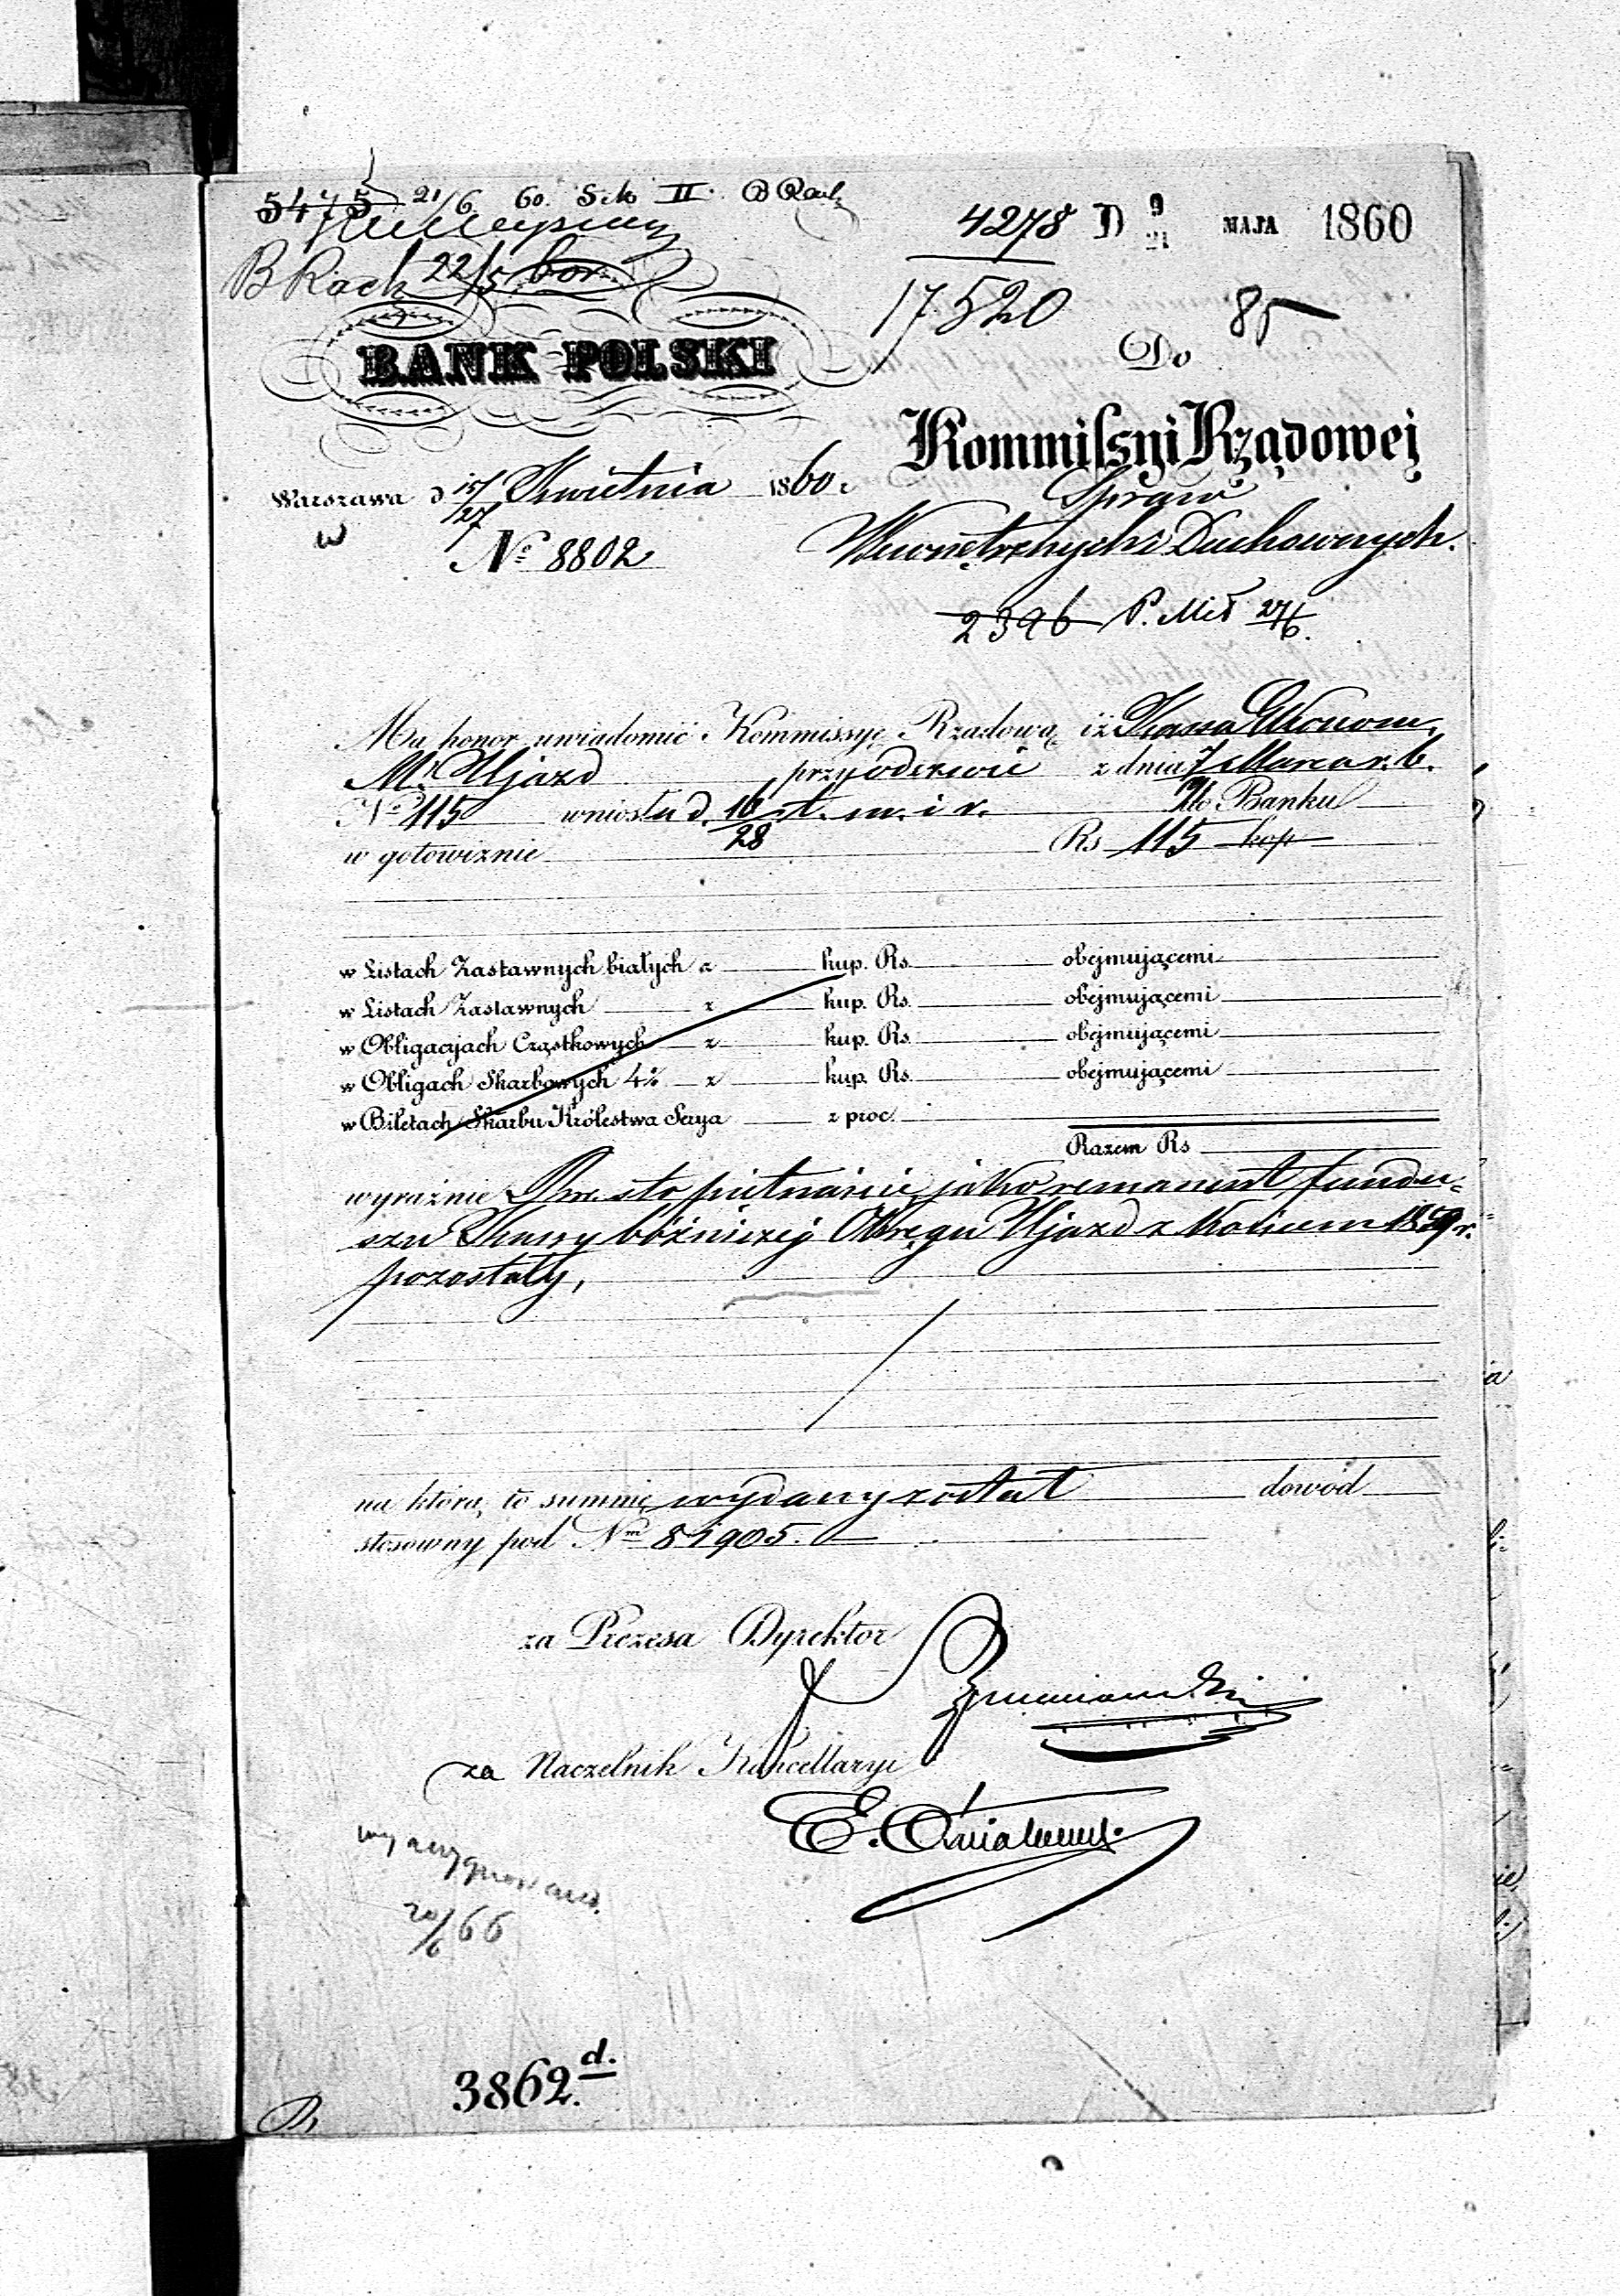 5475 21/6 60. II. B Rach
4278 D 9/21 MAJA 1860
B Rach 22/5
17520
85
BANK POLSKI
Do
Kommissyi Rządowej
Spraw
Wewnętrznych i Duchownych.
Warszawa d 15/27 Kwietnia 1860 r.
w
No 8802
2396 P. Mił 27/6.
Ma honor uwiadomić Kommissyę Rządową iż Kassa Ekonom.
M. Ujazd przy odezwie z dnia 7 Marca r. b.
No 115 wniosła d. 16/28 t. m. i r. do Banku
w gotowiznie Rs 115 kop
w Listach Zastawnych białych z kup. Rs. obejmującemi
w Listach Zastawnych z kup. Rs. obejmującemi
w Obligacyjach Cząstkowych z kup. Rs. obejmującemi
w Obligach Skarbowych 4% z kup. Rs. obejmującemi
w Biletach Skarbu Królestwa Serya z proc.
Razem Rs
wyraźnie Rsr. sto piętnaście, jako remanent fundu-
szu Kassy bóżniczej Okręgu Ujazd z końcem 1859 r.
pozostały,
na którą to summę wydany został dowód
stosowny pod Nm 81905.
za Prezesa Dyrektor
za Naczelnik Kancellaryi
wyasygnowano
20/6 66
3862 d.